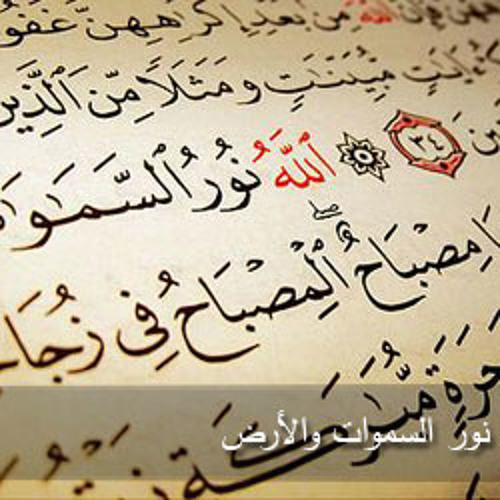 ٱللَّهَ مِنۢ بَعْدِ إِكْرَٰهِهِنَّ غَفُو
ءَايَٰتٍ مُّبَيِّنَٰتٍ وَمَثَلًا مِّنَ ٱلَّذِينَ
٣٤ ٱللَّهُ نُورُ ٱلسَّمَٰوَٰ
مِصْبَاحٌ ۖ ٱلْمِصْبَاحُ فِى زُجَا
نور السموات والأرض